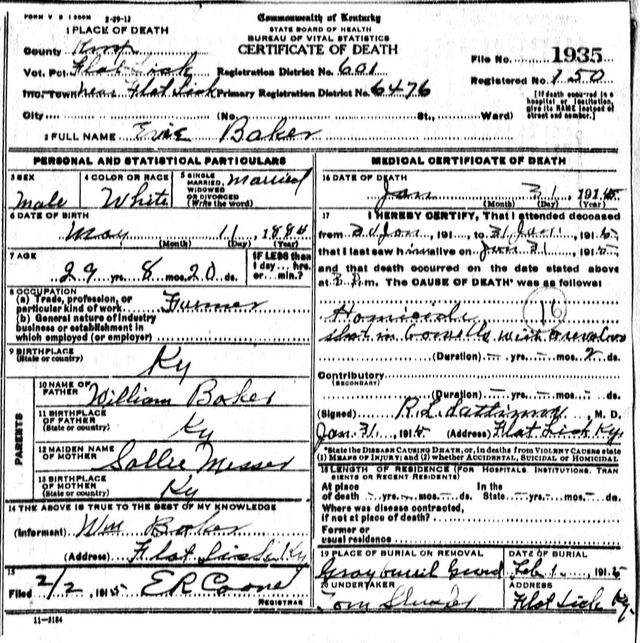 FORM V S 1 2-29-12
Commonwealth of Kentucky
STATE BOARD OF HEALTH
BUREAU OF VITAL STATISTICS
CERTIFICATE OF DEATH
1 PLACE OF DEATH
County Knox
Vot. Pct. Flat Lick
Inc. Town near Flat Lick
City
Registration District No. 601
Primary Registration District No. 6476
(No. St., Ward)
File No. 1935
Registered No. 150
[If death occurred in a hospital or institution, give its NAME instead of street and number.]
2 FULL NAME Baker
PERSONAL AND STATISTICAL PARTICULARS
3 SEX
Male
4 COLOR OR RACE
White
5 SINGLE, MARRIED, WIDOWED OR DIVORCED (Write the word)
Married
6 DATE OF BIRTH
May 11, 1884
(Month) (Day) (Year)
7 AGE
29 yrs. 8 mos. 20 ds.
IF LESS than 1 day... hrs. or... min.?
8 OCCUPATION
(a) Trade, profession, or particular kind of work Farmer
(b) General nature of industry business or establishment in which employed (or employer)
9 BIRTHPLACE
(State or country)
Ky
PARENTS
10 NAME OF FATHER
William Baker
11 BIRTHPLACE OF FATHER
(State or country)
Ky
12 MAIDEN NAME OF MOTHER
Sallie Messer
13 BIRTHPLACE OF MOTHER
(State or country)
Ky
14 THE ABOVE IS TRUE TO THE BEST OF MY KNOWLEDGE
(Informant) Wm Baker
(Address) Flat Lick Ky
15
Filed 2/2, 1915
REGISTRAR
11-3184
MEDICAL CERTIFICATE OF DEATH
16 DATE OF DEATH
Jan 31, 1915
(Month) (Day) (Year)
17 I HEREBY CERTIFY, That I attended deceased
from Jan, 191 to 31 Jan, 1915
that I last saw him alive on Jan 31, 1915
and that death occurred on the date stated above
at m. The CAUSE OF DEATH* was as follows:
Homicide 16
Shot in bowells with revolver
(Duration) yrs. mos. 2 ds.
Contributory
(SECONDARY)
(Duration) yrs. mos. ds.
(Signed) M. D.
Jan 31, 1915 (Address) Flat Lick Ky.
*State the DISEASE CAUSING DEATH, or, in deaths from VIOLENT CAUSES state (1) MEANS OF INJURY; and (2) whether ACCIDENTAL, SUICIDAL or HOMICIDAL.
18 LENGTH OF RESIDENCE (FOR HOSPITALS, INSTITUTIONS, TRANSIENTS OR RECENT RESIDENTS)
At place of death yrs. mos. ds. In the State yrs. mos. ds.
Where was disease contracted, if not at place of death?
Former or usual residence
19 PLACE OF BURIAL OR REMOVAL
DATE OF BURIAL
Feb 1, 1915
20 UNDERTAKER
Tom
ADDRESS
Flat Lick Ky.